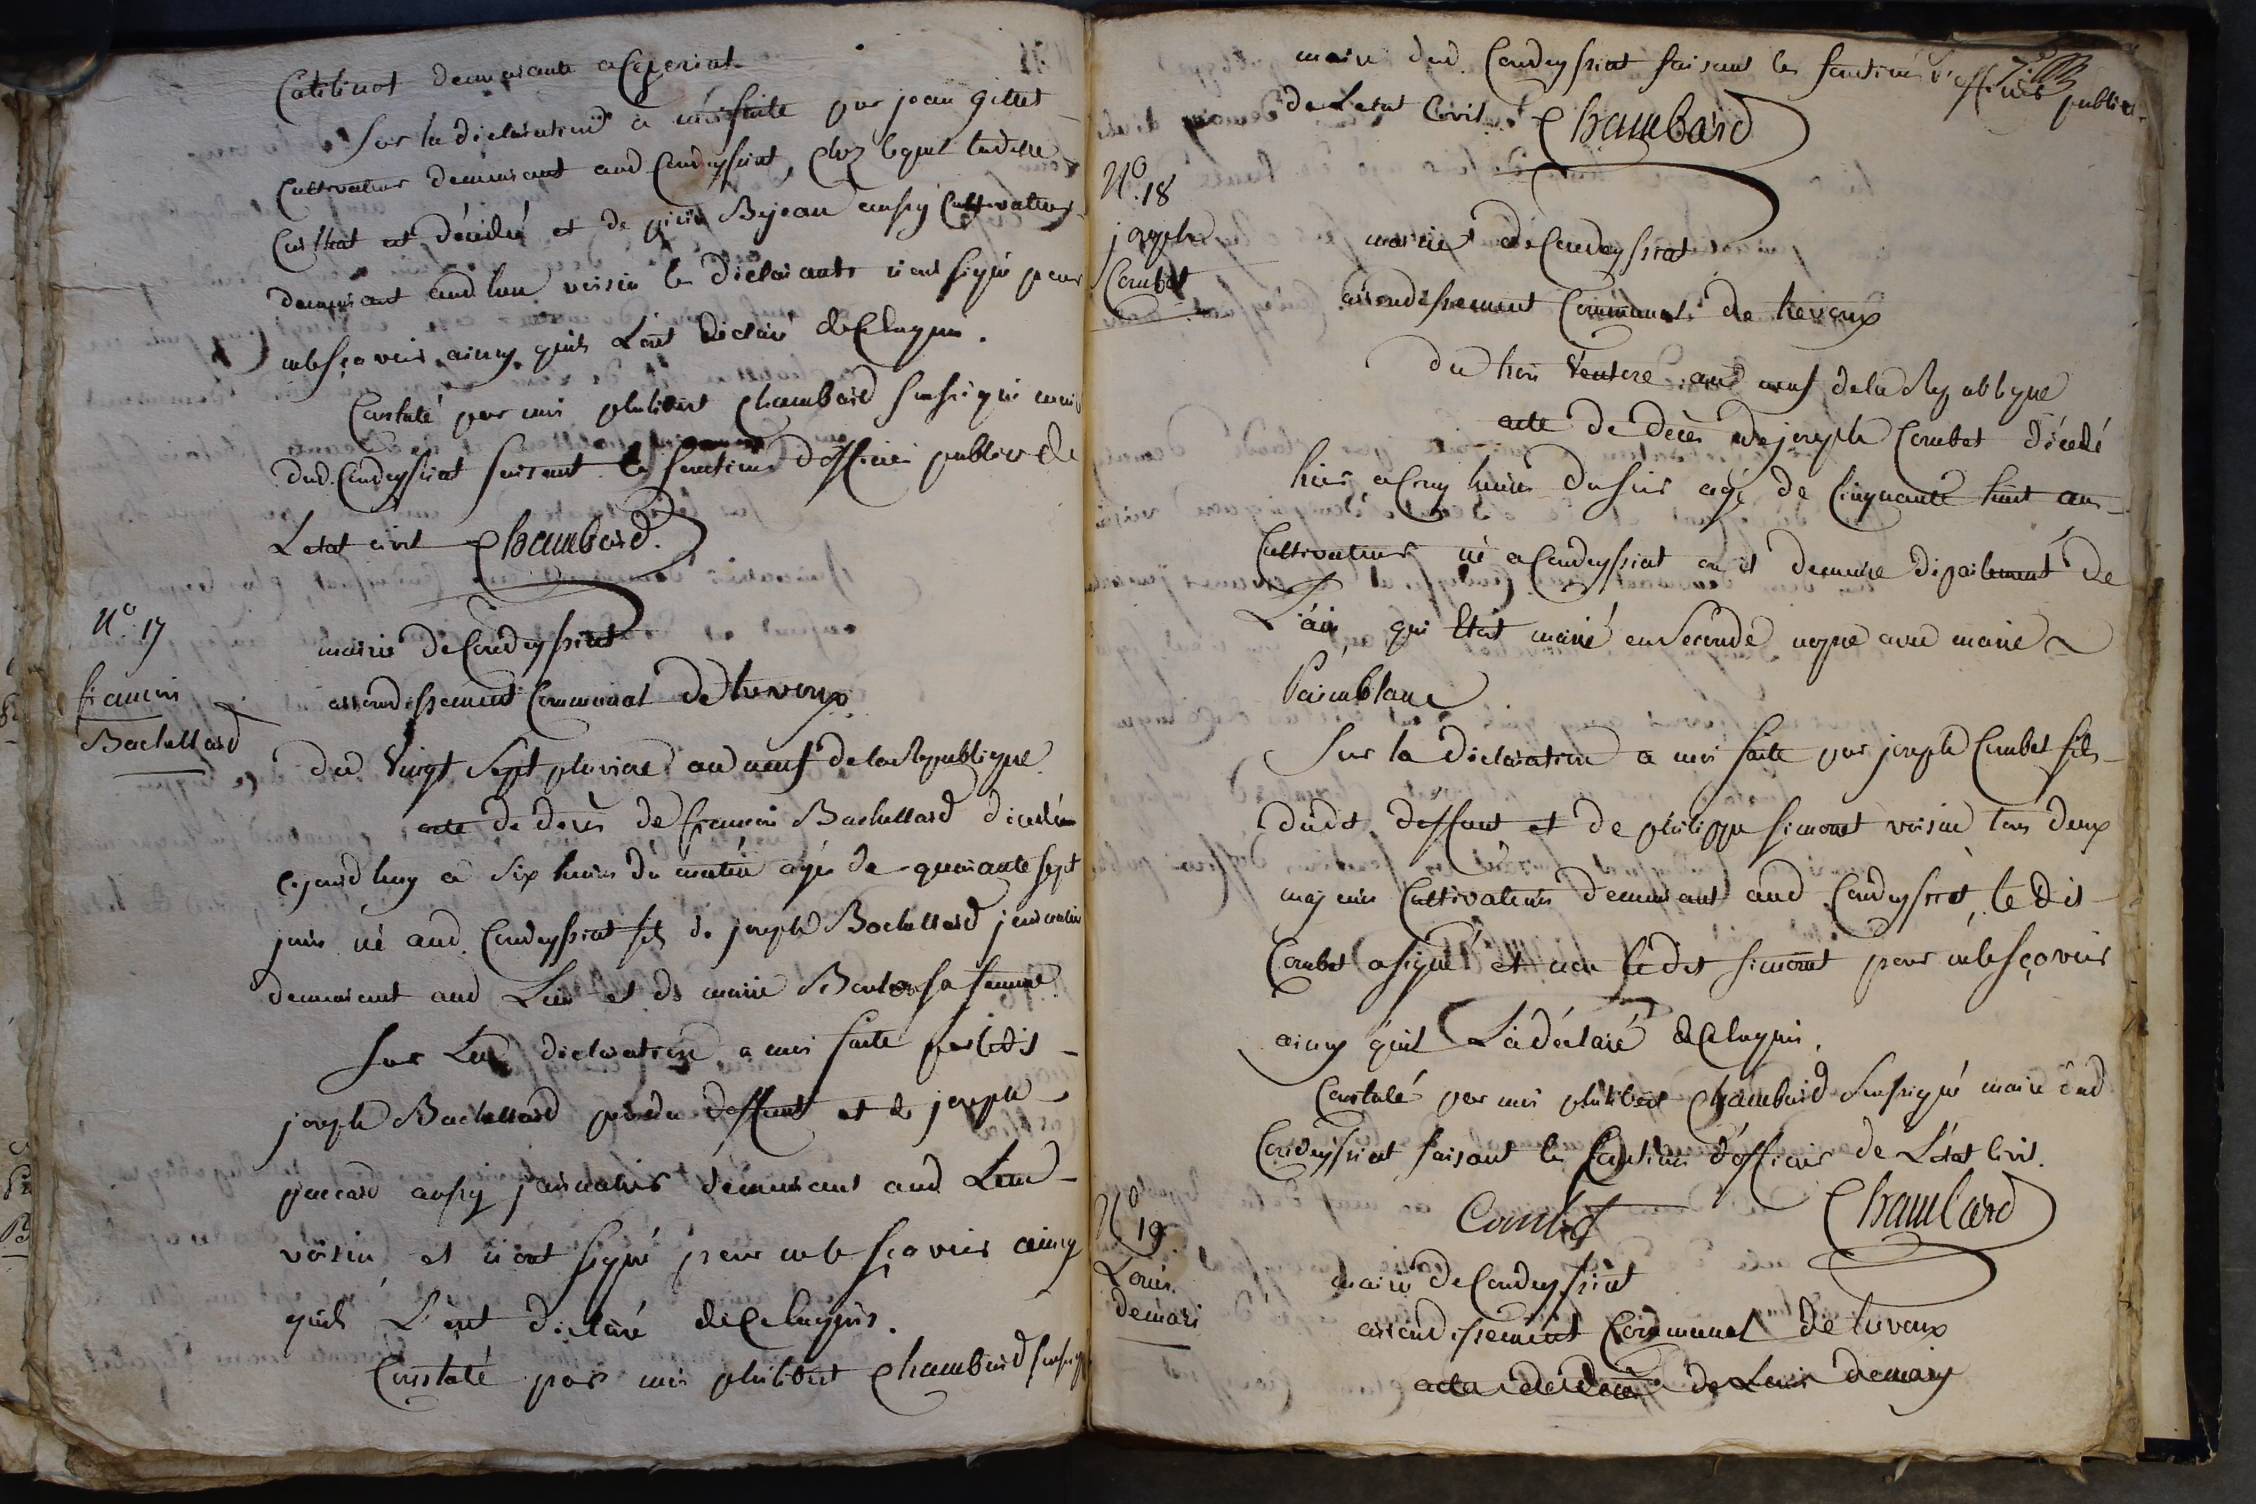 Catilinot demeurante a Ceyzeriat
Sur la déclaration a moi faite par jean Gillet
Cultivateur demeurant aud Condeyssiat, chez lequel laditte
est décédé et de Bijean aussy Cultivateur
demeurant aud lieu voisin les déclarants n'ont signé pour
ne le sçavoir ainsy quils L'ont déclaré de Ce Enquis.
Constaté par moi philibert Chambard soussigné maire
dud. Condeyssiat faisant les fonctions d'officier public de
L'etat civil Chambard
N.o 17
francois
Bachellard
mairie de Condeyssiat
arrondissement Communal de trevoux
du vingt sept pluviose an neuf de la Republique
acte de décès de francois Bachellard décédé
cejourd'huy a six heures du matin agé de quarante sept
jours né aud. Condeyssiat fils de joseph Bachellard journalier
demeurant aud Lieu et de marie sa femme
Sur La déclaration a moi faite par ledit
joseph Bachellard père du deffunt et de joseph
paccard aussy journalier demeurant aud Lieu
voisin et n'ont signé pour ne le sçavoir ainsy
quils L'ont déclaré de Ce Enquis.
Constaté par moi philibert Chambard soussigné
maire dud. Condeyssiat faisant les fonctions d'officier public
de L'etat Civil. Chambard
N.o 18
joseph
Combet
mairie de Condeyssiat
arrondissement Communal de trevoux
du trois Ventose an neuf de la Republique
acte de décès de joseph Combet décédé
hier a Cinq heures du soir agé de Cinquante huit ans
Cultivateur né a Condeyssiat ou il demeure département de
L'ain, qui Etoit marié en Seconde nopce avec marie
Painblanc
Sur la déclaration a moi faite par joseph Combet fils
dudit deffunt et de philippe simonet voisin tous deux
majeurs Cultivateurs demeurant aud Condeyssiat, le dit
Combet a signé et non ledit simonet pour ne le sçavoir
ainsy quil L'a déclaré de Ce Enquis.
Constaté par moi philibert Chambard Soussigné maire dud
Condeyssiat faisant les fonctions d'officier de L'état Civil.
Combet Chambard
N.o 19.
Louis
demari
mairie de Condeyssiat
arrondissement Communal de trevoux
acte de décès de Louis demary